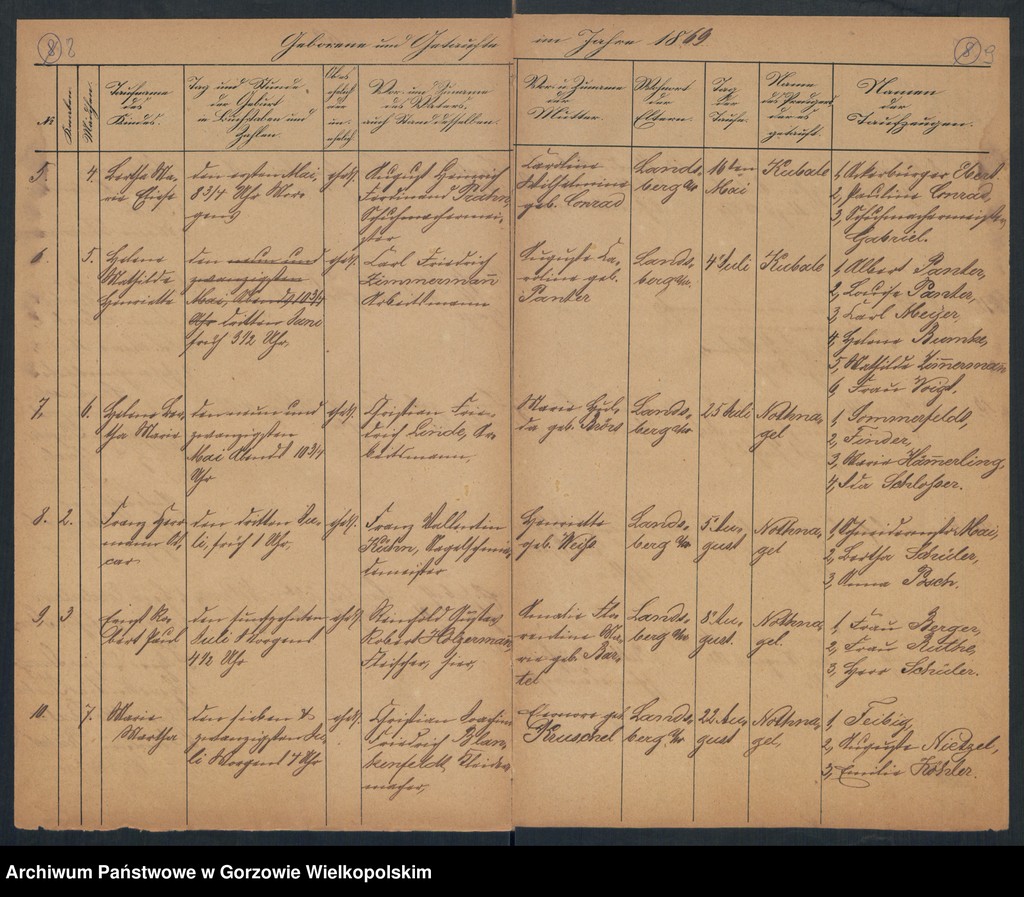 8 8
Geborene und Getaufte im Jahre 1869
8 9
№
Knaben.
Mädchen.
Taufname
des
Kindes.
Tag und Stunde
der Geburt
in Buchstaben und
Zahlen
Ob es
ehelich
od.
un-
ehelich
Vor- und Zuname
des Vaters,
auch Stand desselben.
Vor- u. Zuname
der
Mutter.
Wohnort
der
Eltern.
Tag
der
Taufe.
Name
des Predigers
der es
getauft.
Namen
der
Taufzeugen.
5. 4. Bertha Ma-
rie Elise
den ersten Mai,
8 3/4 Uhr Mor-
gens
ehel.
August Heinrich
Ferdinand
Schuhmachermei-
ster
Caroline
Wilhelmine
geb. Conrad
Lands-
berg a/W
16ten
Mai
Kubale
1, Ackerbürger Ebert
2, Pauline Conrad,
3, Schuhmachermeister
Gabriel.
6. 5. Helene
Mathilde
Henriette
den neun und
zwanzigsten
Mai, Abends 10 3/4
Uhr dritten Juni
früh 3 1/2 Uhr.
ehel.
Carl Friedrich
Zimmermann
Arbeitsmann
Auguste Ca-
roline geb.
Panter
Lands-
berg a/W.
4 Juli
Kubale
1, Albert Panter,
2, Louise Panter,
3, Carl Meyer,
4, Helene Bumke,
5, Mathilde Zimmermann
6, Frau Voigt.
7. 6. Helene Ber-
tha Marie
den neun und
zwanzigsten
Mai Abends 10 3/4
Uhr
ehel.
Christian Frie-
drich Linde, Ar-
beitsmann,
Marie Hul-
da geb.
Lands-
berg a/W
25 Juli
Nothna-
gel
1, Sommerfeldt,
2, Tinder,
3, Marie Hämmerling,
4, Ida Schlosser.
8. 2. Franz Herr-
mann Os-
car
den dritten Ju-
li, früh 1 Uhr,
ehel.
Franz Vallentin
Kühn, Nagelschmie-
demeister
Henriette
geb. Weiß
Lands-
berg a/W
5 Au-
gust
Nothna-
gel
1, Schneidermstr Mai,
2, Bertha Schüler,
3, Anna Posch.
9. 3 Ernst Ro-
bert Paul
den fünfzehnten
Juli Morgens
4 1/2 Uhr
ehel.
Reinhold Gustav
Robert Holzermann,
Fleischer, hier,
Amalie Flo-
rentine Ma-
rie geb. Bar-
tel
Lands-
berg a/W
8 Au-
gust.
Nothna-
gel.
1, Frau Berger,
2, Frau Ruthe,
3, Herr Schüler.
10. 7. Marie
Martha
den sieben &
zwanzigsten Ju-
li Morgens 7 Uhr
ehel.
Christian Joachim
Friedrich Blan-
kenfeldt, Kleider-
macher,
Eleonore geb.
Kruschel
Lands-
berg a/W
22 Au-
gust
Nothna-
gel,
1, Feibig,
2, Auguste Nietzel,
3, Emilie Köhler.
Archiwum Państwowe w Gorzowie Wielkopolskim